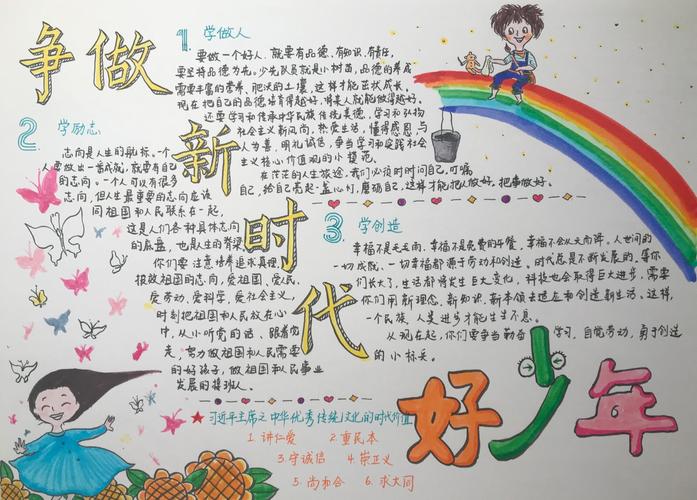 争做
新
时
代
好少年
1. 学做人
要做一个好人,就要有品德、有知识、有责任,
要坚持品德为先。少先队员就是小树苗,品德的养成
需要丰富的营养、肥沃的土壤,这样才能茁壮成长。
现在把自己的品德培育得越好,将来人就能做得越好。
还要学习和传承中华民族传统美德,学习和弘扬
社会主义新风尚,热爱生活,懂得感恩,与
人为善,明礼诚信,争当学习和实践社会
主义核心价值观的小模范。
在茫茫的人生旅途,我们必须时时问自己,叮嘱
自己,给自己亮起一盏心灯,磨砺自己,这样才能把人做好,把事做好。
2 学励志
志向是人生的航标。一个
人要做出一番成就,就要有自己
的志向。一个人可以有很多
志向,但人生最重要的志向应该
同祖国和人民联系在一起,
这是人们各种具体志向
的底盘,也是人生的脊梁。
你们要注意培养追求真理、
报效祖国的志向,爱祖国、爱人民、
爱劳动、爱科学、爱社会主义,
时刻把祖国和人民放在心
中,从小听党的话、跟着党
走,努力做祖国和人民需要
的好孩子,做祖国和人民事业
发展的接班人。
3 学创造
幸福不是毛毛雨,幸福不是免费的午餐,幸福不会从天而降。人世间的
一切成就、一切幸福都源于劳动和创造。时代总是不断发展的,等你
们长大了,生活都将发生巨大变化,科技也会取得巨大进步,需要
你们用新理念、新知识、新本领去适应和创造新生活。这样,
一个民族、人类进步才能生生不息。
从现在起,你们要争当勤奋学习、自觉劳动、勇于创造
的小标兵。
★习近平主席之中华优秀传统文化的时代价值
1. 讲仁爱 2. 重民本
3. 守诚信 4. 崇正义
5. 尚和合 6. 求大同